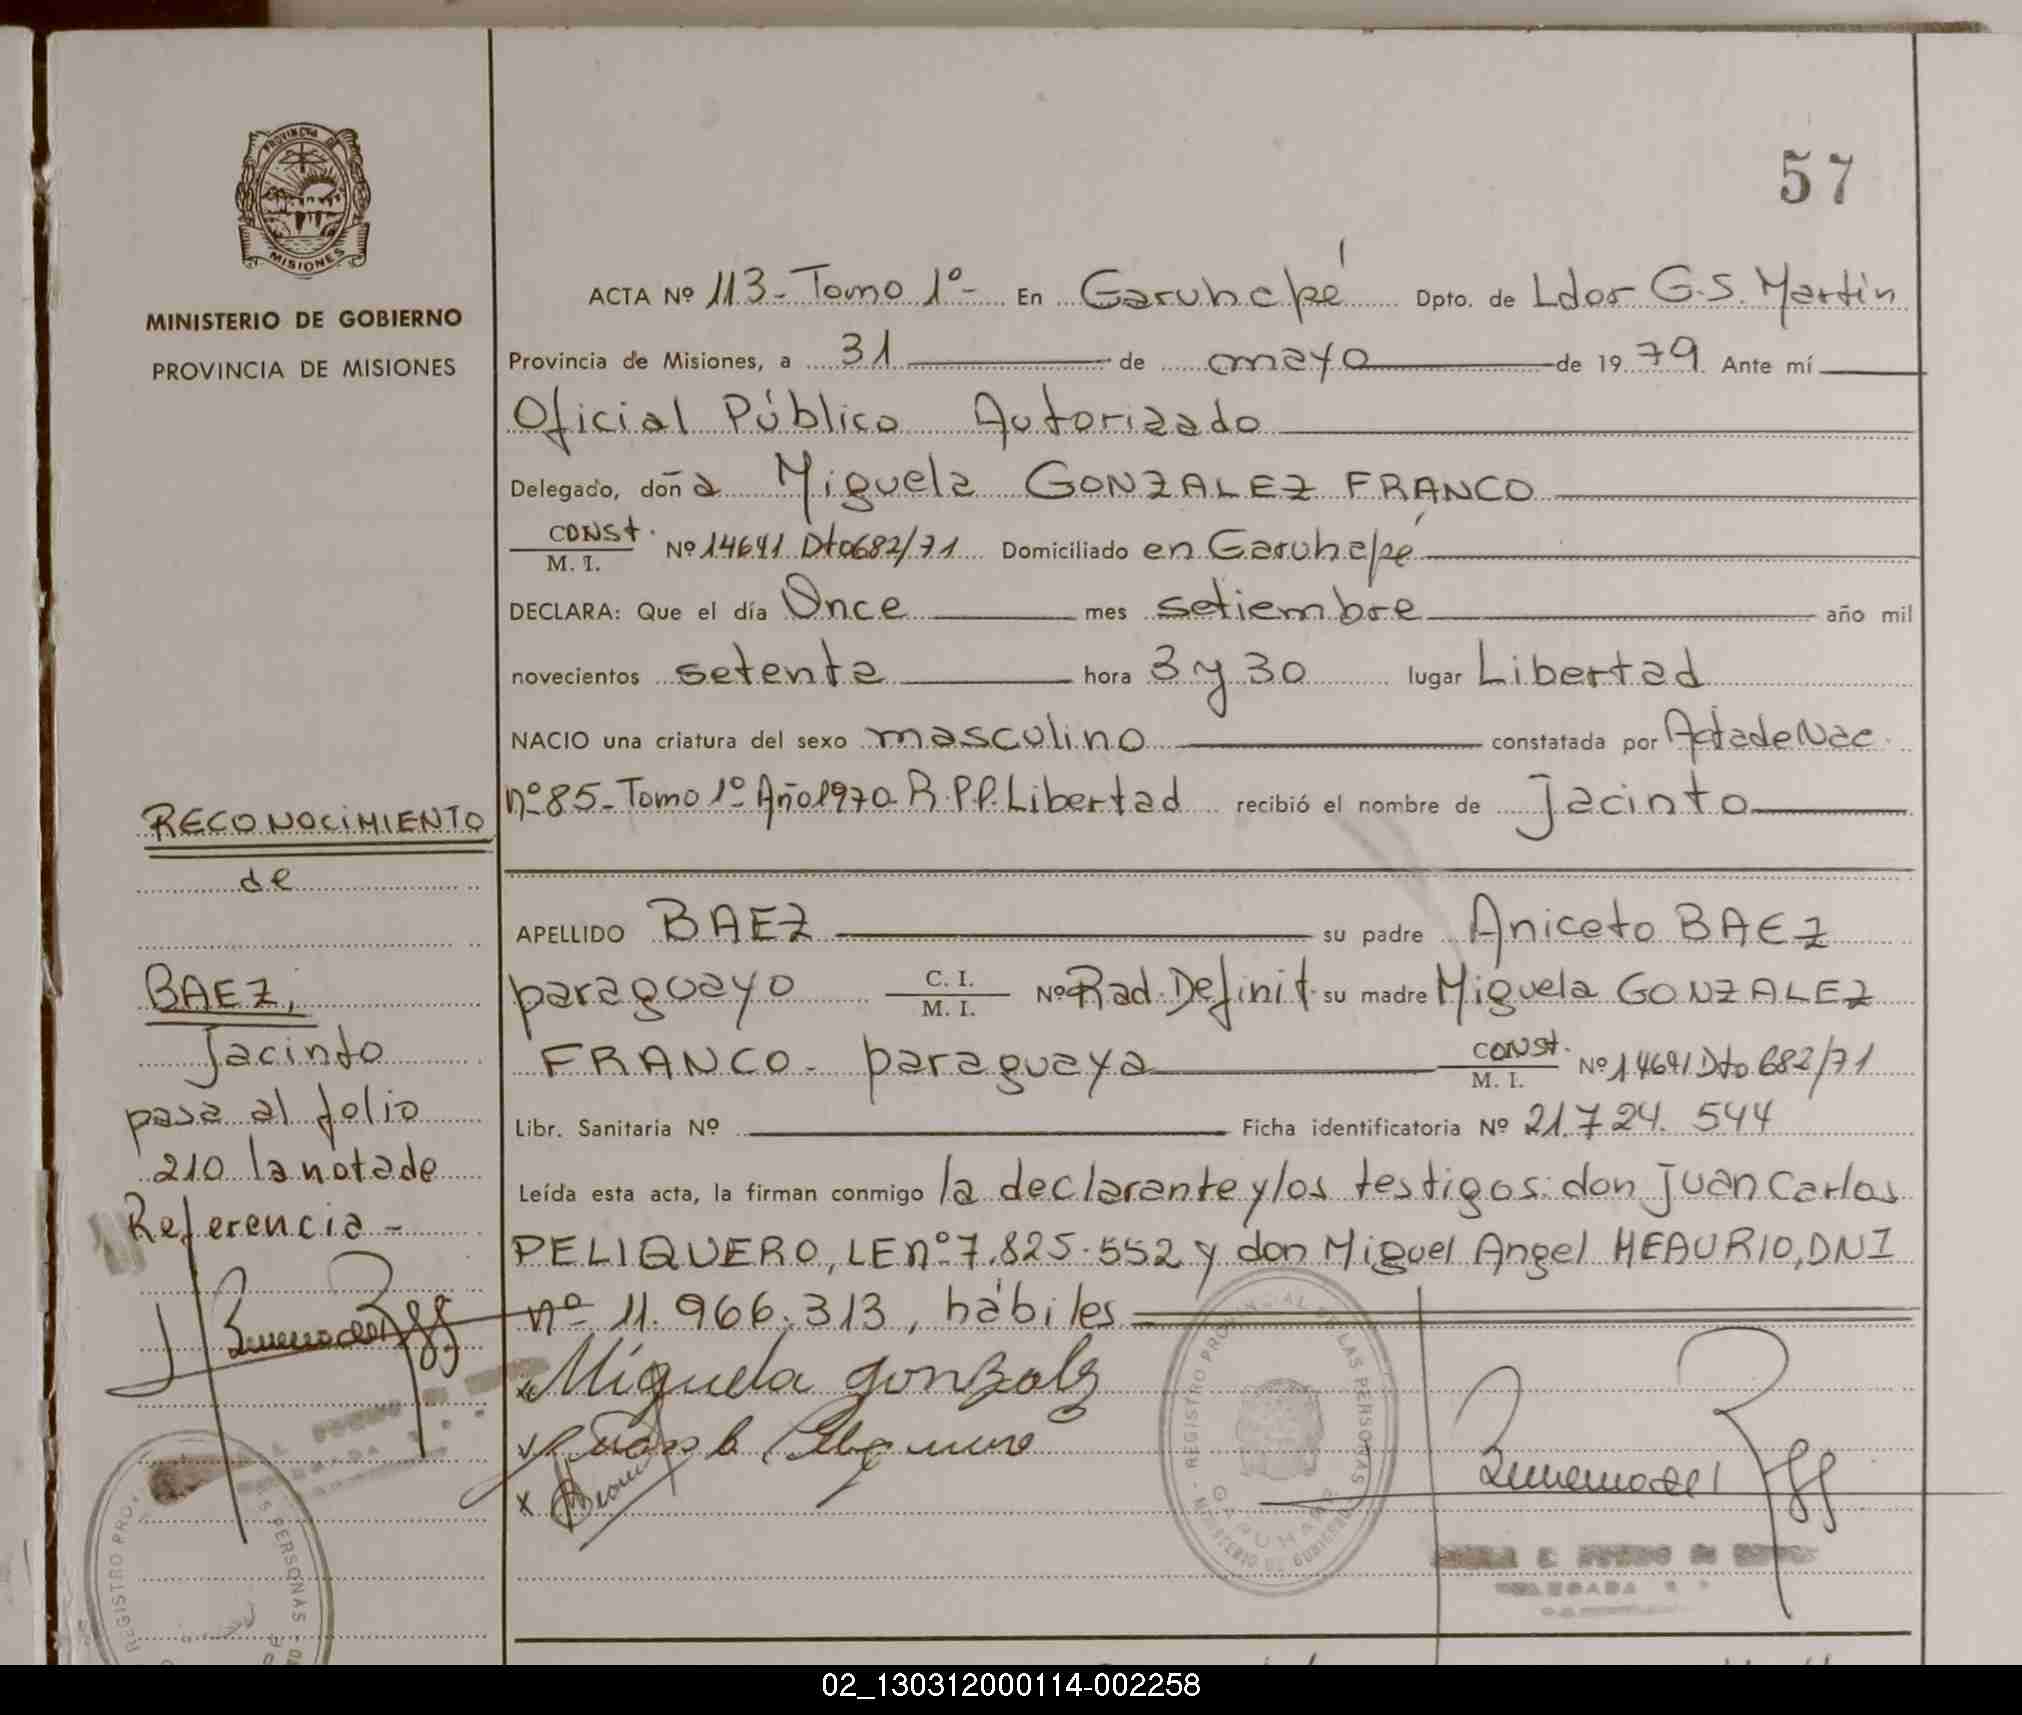 57
PROVINCIA DE
MISIONES
MINISTERIO DE GOBIERNO
PROVINCIA DE MISIONES
ACTA Nº 113 - Tomo 1º - En Garuhapé Dpto. de Ldor G.S. Martín
Provincia de Misiones, a 31 de mayo de 1979 Ante mí
Oficial Público Autorizado
Delegado, doña Miguela GONZALEZ FRANCO
CONST.
M. I. Nº 14641 Dto 682/71 Domiciliado en Garuhapé
DECLARA: Que el día Once mes setiembre año mil
novecientos setenta hora 3 y 30 lugar Libertad
NACIO una criatura del sexo masculino constatada por Acta de Nac.
nº 85 - Tomo 1º Año 1970 R.P.P. Libertad recibió el nombre de Jacinto
APELLIDO BAEZ su padre Aniceto BAEZ
paraguayo C. I. / M. I. Nº Rad. Definit. su madre Miguela GONZALEZ
FRANCO - paraguaya CONST. / M. I. Nº 14641 Dto 682/71
Libr. Sanitaria Nº Ficha identificatoria Nº 21.724.544
Leída esta acta, la firman conmigo la declarante y los testigos: don Juan Carlos
PELIQUERO, LE nº 7.825.552 y don Miguel Angel MEAURIO, DNI
nº 11.966.313, hábiles
Miguela Gonzalz
REGISTRO PROVINCIAL DE LAS PERSONAS
GARUHAPE
RECONOCIMIENTO
de
BAEZ,
Jacinto
pasa al folio
210 la nota de
Referencia -
REGISTRO PRO
S PERSONAS
02_130312000114-002258